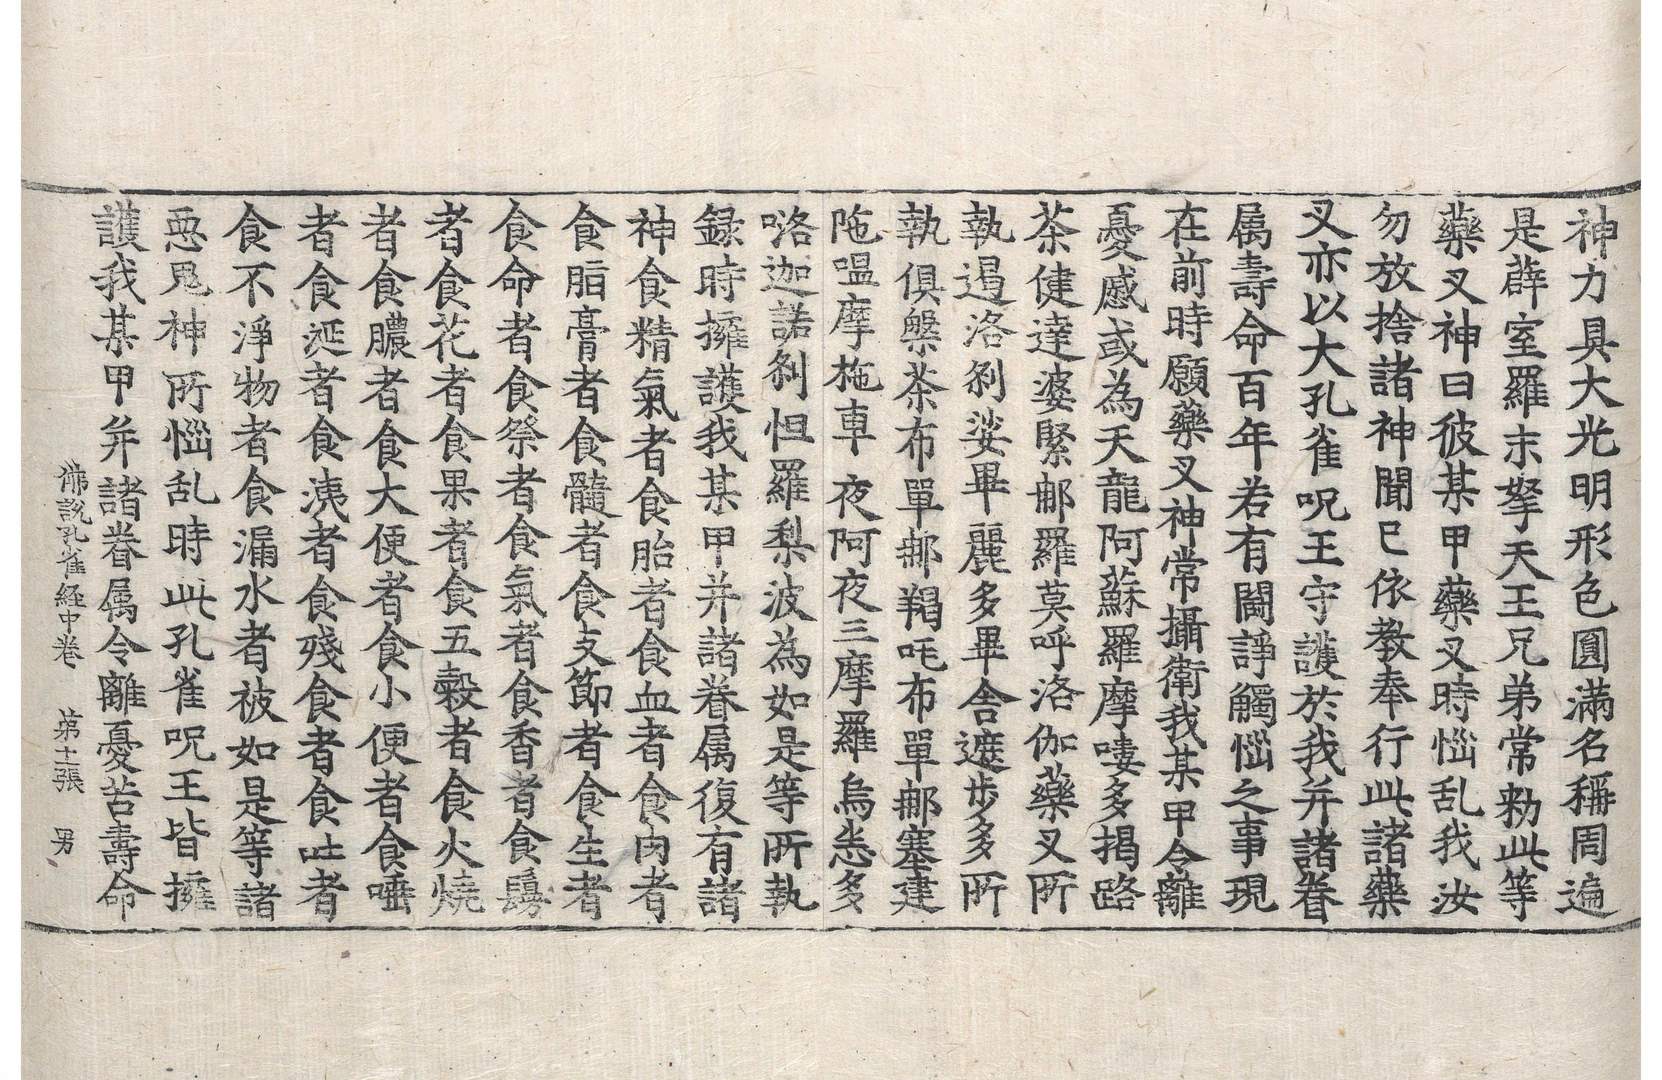 神力具大光明形色圓滿名稱周遍
是薜室羅末拏天王兄弟常勑此等
藥叉神曰彼某甲藥叉時惱乱我汝
勿放捨諸神聞已依教奉行此諸藥
叉亦以大孔雀呪王守護於我并諸眷
属壽命百年若有鬪諍觸惱之事現
在前時願藥叉神常攝衛我某甲令離
憂慼或為天龍阿蘇羅摩嘍多揭路
茶健達婆緊郍羅莫呼洛伽藥叉所
執遏洛剎娑畢麗多畢舍遮步多所
執俱槃茶布單郍羯吒布單郍塞建
陁嗢摩拖車夜阿夜三摩羅烏悉多
咯迦諾剎怛羅梨波為如是等所執
録時擁護我某甲并諸眷属復有諸
神食精氣者食胎者食血者食肉者
食脂膏者食髓者食支節者食生者
食命者食祭者食氣者食香者食鬘
者食花者食果者食五穀者食火燒
者食膿者食大便者食小便者食唾
者食涎者食洟者食殘食者食吐者
食不淨物者食漏水者被如是等諸
惡鬼神所惱乱時此孔雀呪王皆擁
護我某甲并諸眷属令離憂苦壽命
佛說孔雀経中卷 第十一張 男